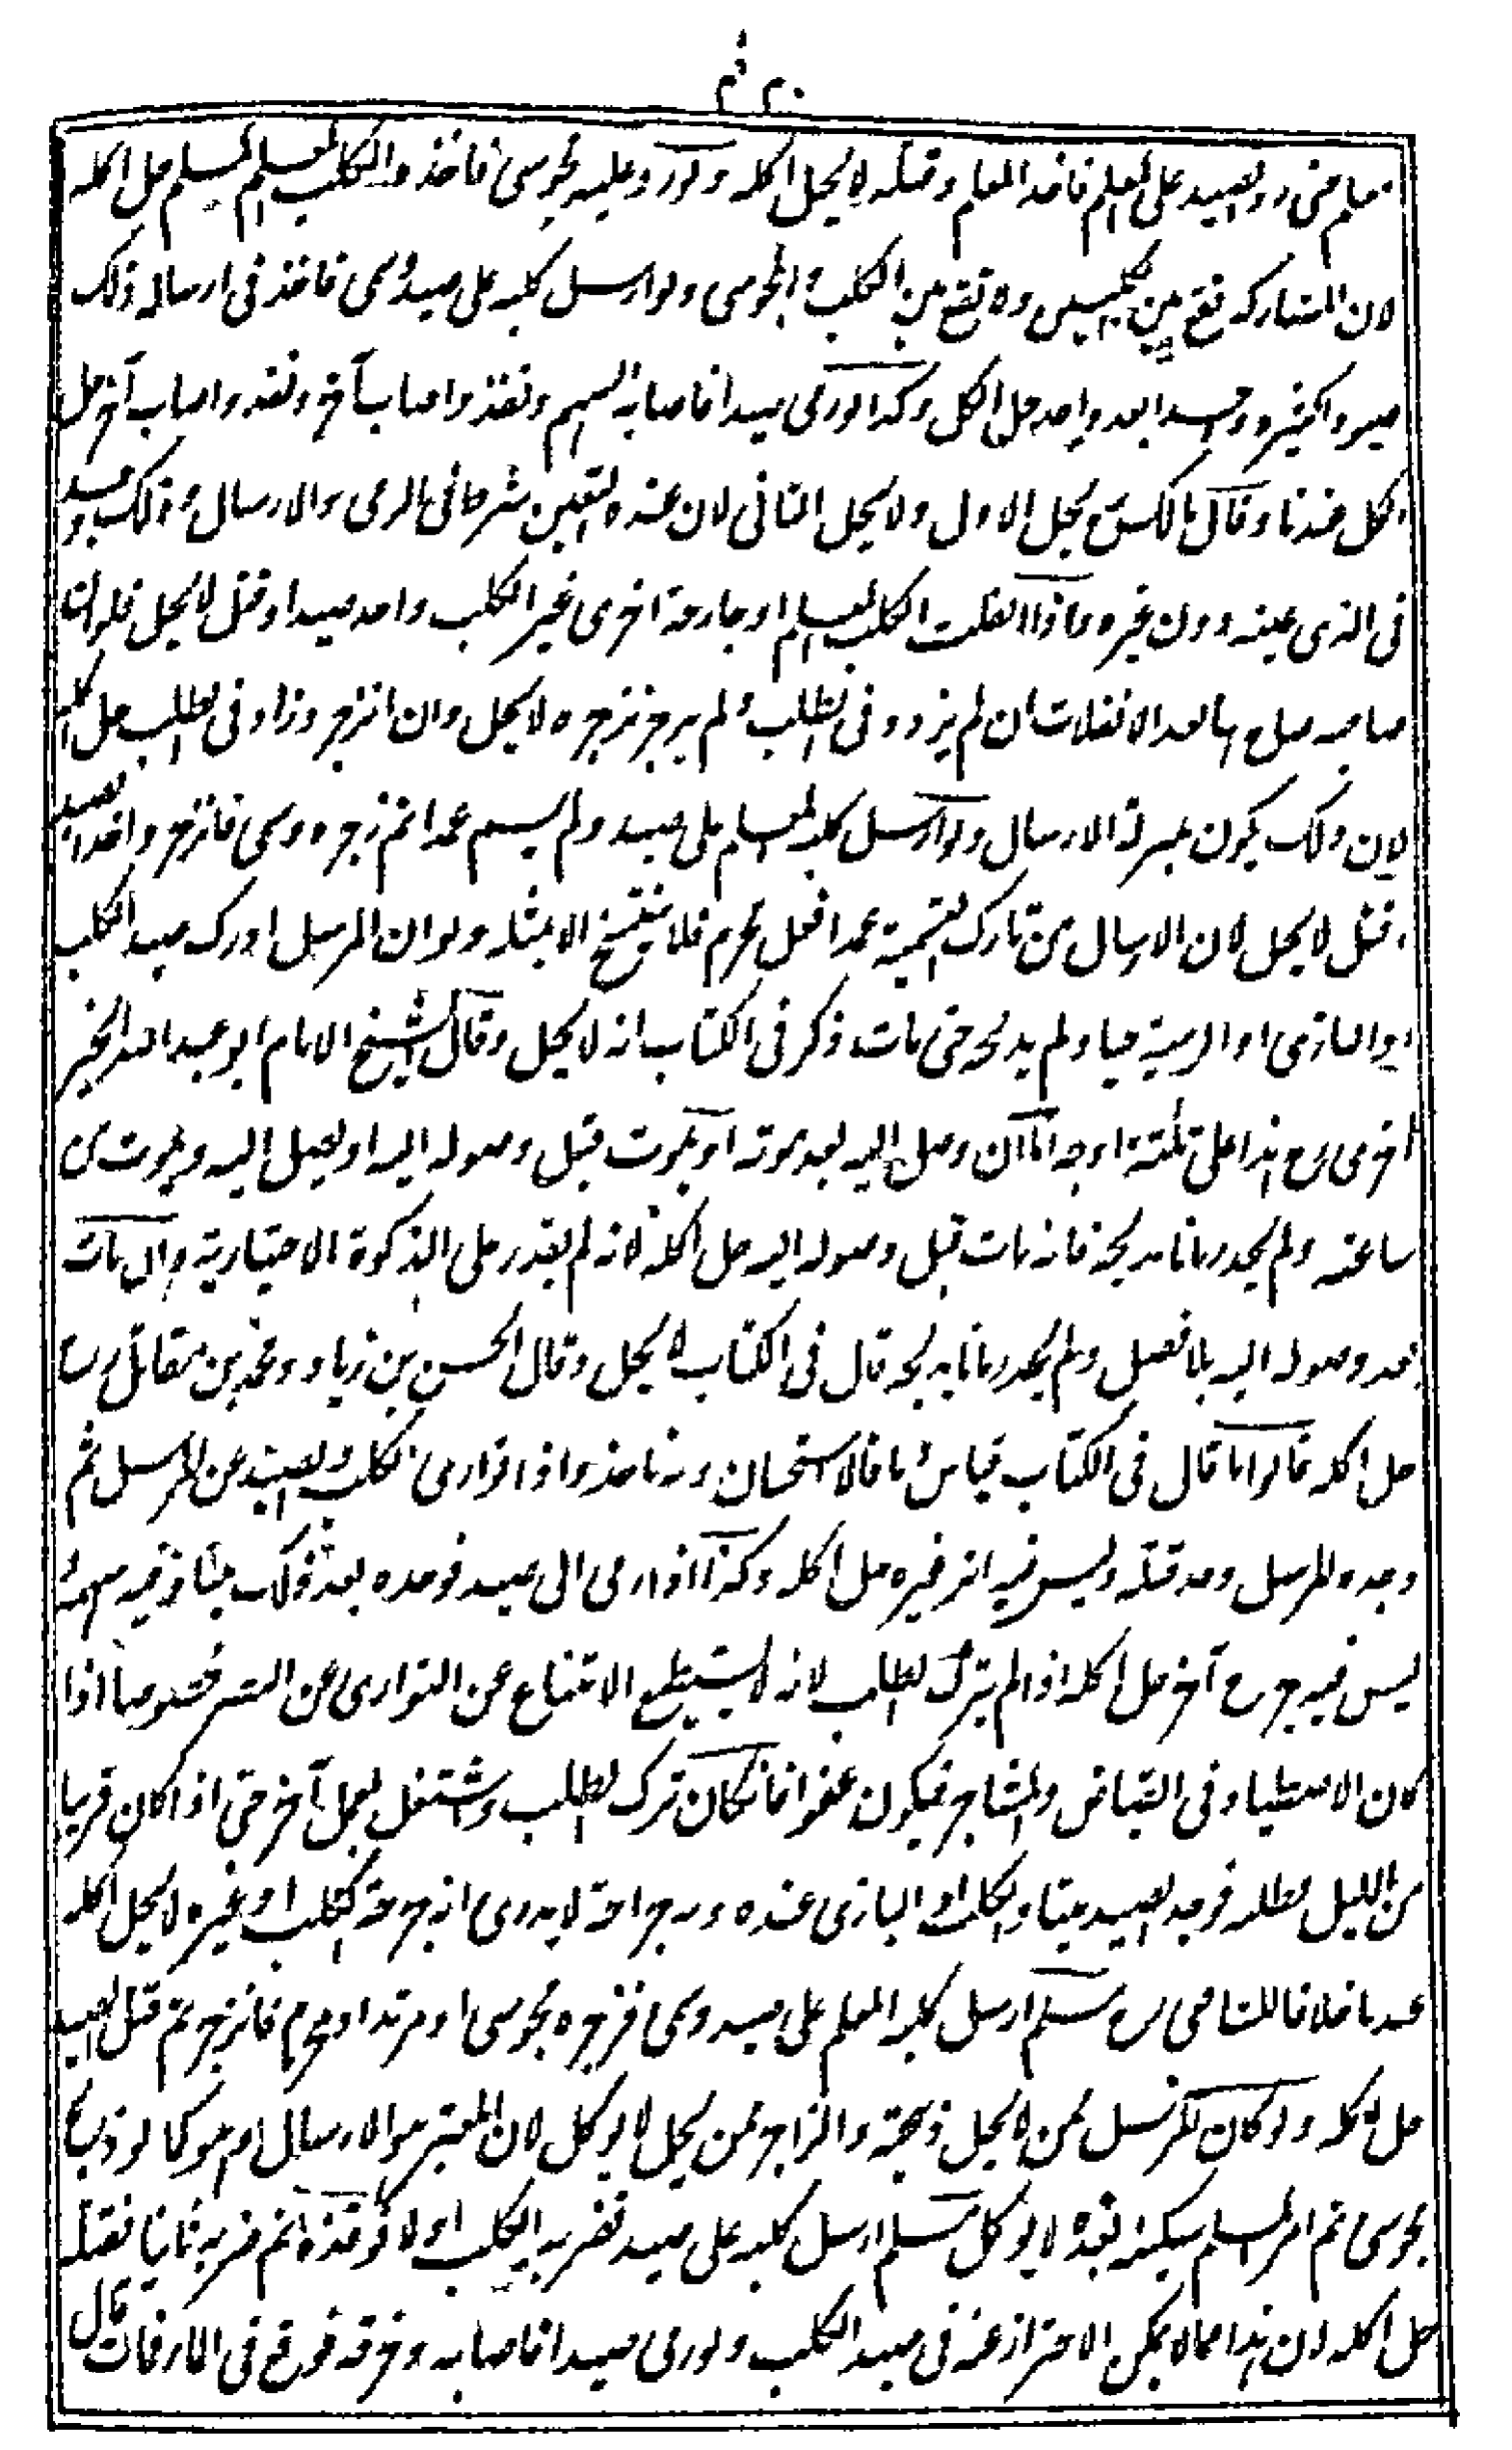 ٢٠ ٣
معلم حتى رد الصيد على المعلم فاخذ المعلم وقتله لا يحل اكله ولو رد عليه مجوسي فاخذه الكلب المعلم المسلم حل اكله
لان المشاركة تقع بين الكلبين ولا تقع بين الكلب والمجوسي ولو ارسل كلبه على صيد وسمى فاخذ في ارساله ذلك
صيودا كثيرة واحدا بعد واحد حل الكل وكذا لو رمى صيدا فاصابه السهم ونفذ واصاب آخر ونفذ واصاب آخر حل
الكل عندنا وقال مالك س يحل الاول ولا يحل الثاني لان عنده التعيين شرط في الرمي والارسال وذلك وجد
في الذي عينه دون غيره واذا انفلت الكلب المعلم او جارحة اخرى غير الكلب واخذ صيدا وقتل لا يحل فلو ان
صاحبه صاح به بعد الانفلات ان لم يزدد في الطلب ولم ينزجر بزجره لا يحل وان انزجر وزاد في الطلب حل اكله
لان ذلك يكون بمنزلة الارسال ولو ارسل كلبه المعلم على صيد ولم يسم عمدا ثم زجره وسمى فانزجر واخذ الصيد
وقتل لا يحل لان الارسال من تارك التسمية عمدا فعل محرم فلا ينتسخ الا بمثله ولو ان المرسل ادرك صيد الكلب
او البازي او الرمية حيا ولم يذبحه حتى مات ذكر في الكتاب انه لا يحل وقال الشيخ الامام ابو عبد الله الخيز
اخزي رح هذا على ثلثة اوجه اما ان وصل اليه بعد موته او يموت قبل وصوله اليه او يصل اليه ويموت من
ساعته ولم يجد زمانا يذبحه فانه مات قبل وصوله اليه حل اكله لانه لم يقدر على الذكوة الاختيارية وان مات
بعد وصوله اليه بلا فصل ولم يجد زمانا يذبحه قال في الكتاب لا يحل وقال الحسن بن زياد ومحمد بن مقاتل رح
حل اكله قالوا ما قال في الكتاب قياس وما قالا استحسان وبه ناخذ واذا توارى الكلب والصيد عن المرسل ثم
وجده المرسل وقد قتله وليس فيه اثر غيره حل اكله وكذا اذا رمى الى صيد فوجده بعد ذلك ميتا وفيه سهمه
ليس فيه جرح آخر حل اكله اذا لم يترك الطلب لانه لا يستطيع الامتناع عن التوارى عن البصر خصوصا اذا
كان الاصطياد في الغياض والمشاجر فيكون عفوا فان كان ترك الطلب واشتغل بعمل آخر حتى اذا كان قريبا
من الليل طلبه فوجد الصيد ميتا والكلب او البازي عنده وبه جراحة لا يدرى انه جرحه الكلب او غيره لا يحل اكله
عندنا خلافا للشافعي رح مسلم ارسل كلبه المعلم على صيد وسمى فزجره مجوسي او مرتد او محرم فانزجر ثم قتل الصيد
حل اكله ولو كان المرسل ممن لا يحل ذبيحته والزاجر ممن يحل لا يوكل لان المعتبر هو الارسال وهو كما لو ذبح
مجوسي ثم امر المسلم سكينه بعده لا يوكل مسلم ارسل كلبه على صيد فضربه الكلب اولا فوقذه ثم ضربه ثانيا فقتله
حل اكله لان هذا مما لا يمكن الاحتراز عنه في صيد الكلب ولو رمى صيدا فاصابه وخرقه فوقع في الماء فمات قال